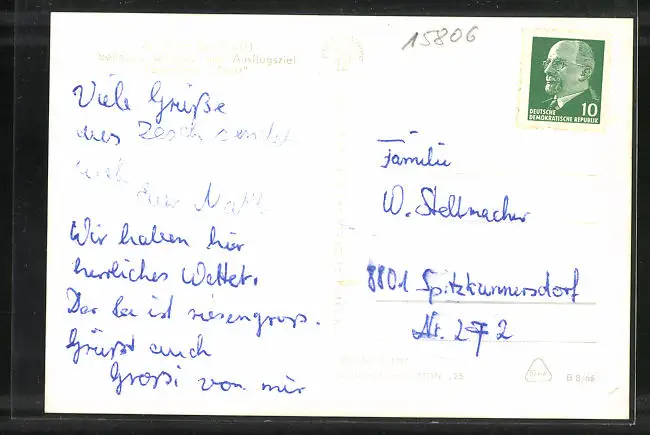 15806
Ausflugsziel
Viele Grüße
aus Zesch sendet
euch
Wir haben hier
herrliches Wetter.
Der See ist riesengross.
Grüßt auch
Grossi von mir
10
DEUTSCHE
DEMOKRATISCHE REPUBLIK
Familie
W. Stellmacher
8801 Spitzkunnersdorf
Nr. 272